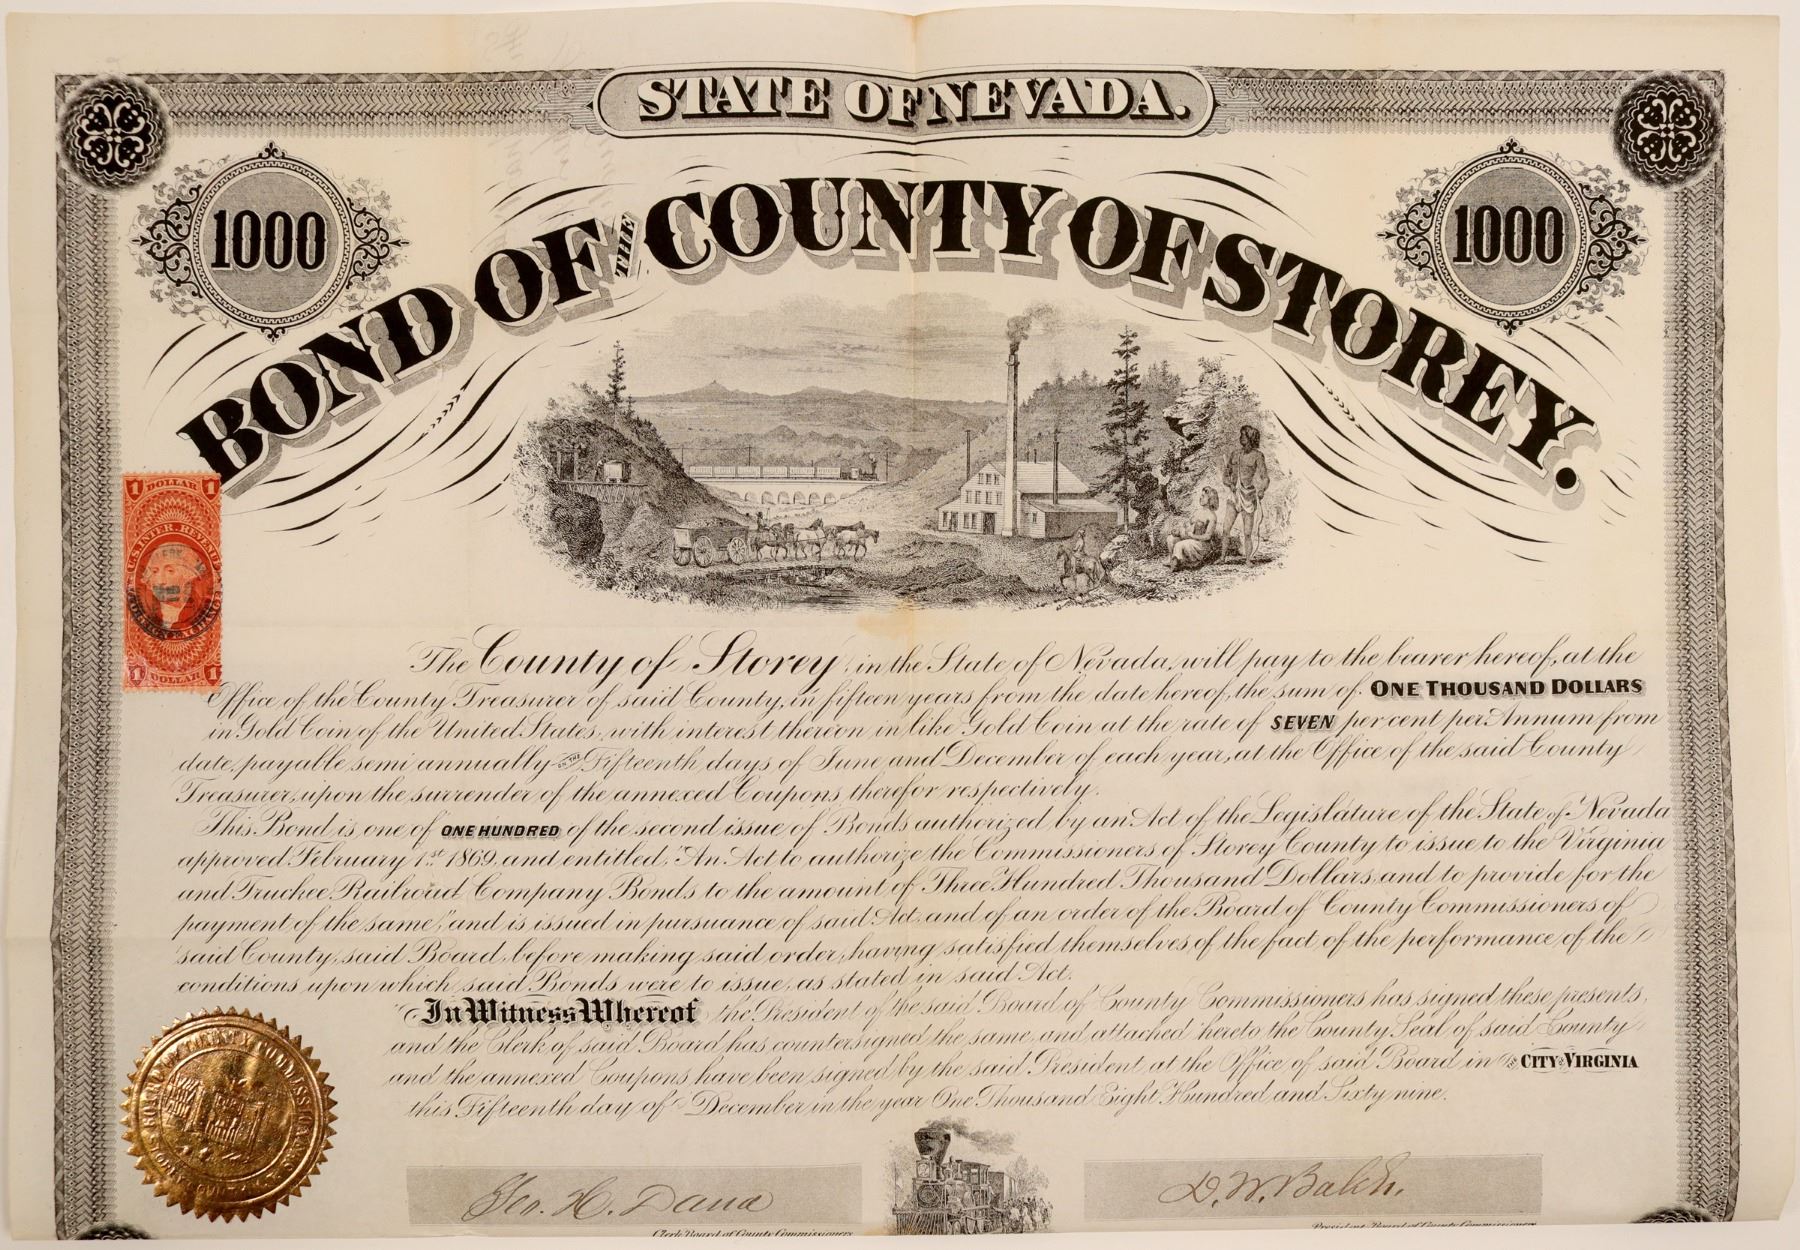 STATE OF NEVADA.
1000
1000
BOND OF THE COUNTY OF STOREY.
1 DOLLAR 1
U.S. INTER. REVENUE
1 DOLLAR 1
The County of Storey, in the State of Nevada, will pay to the bearer hereof, at the
Office of the County Treasurer of said County, in fifteen years from the date hereof, the sum of ONE THOUSAND DOLLARS
in Gold Coin of the United States, with interest thereon in like Gold Coin at the rate of SEVEN per cent per Annum from
date, payable semi annually ON THE Fifteenth days of June and December of each year, at the Office of the said County
Treasurer, upon the surrender of the annexed Coupons, therefor respectively.
This Bond is one of ONE HUNDRED of the second issue of Bonds authorized by an Act of the Legislature of the State of Nevada
approved February 1st 1869, and entitled, "An Act to authorize the Commissioners of Storey County to issue to the Virginia
and Truckee Railroad Company Bonds to the amount of Three Hundred Thousand Dollars, and to provide for the
payment of the same," and is issued in pursuance of said Act and of an order of the Board of County Commissioners of
said County, said Board, before making said order, having satisfied themselves of the fact of the performance of the
conditions upon which said Bonds were to issue, as stated in said Act.
In Witness Whereof the President of the said Board of County Commissioners has signed these presents,
and the Clerk of said Board has countersigned the same, and attached hereto the County Seal of said County
and the annexed Coupons have been signed by the said President at the Office of said Board in THE CITY OF VIRGINIA
this Fifteenth day of December in the year One Thousand Eight Hundred and Sixty nine.
Geo. H. Dana
D. W. Balch.
Clerk Board of County Commissioners
President Board of County Commissioners